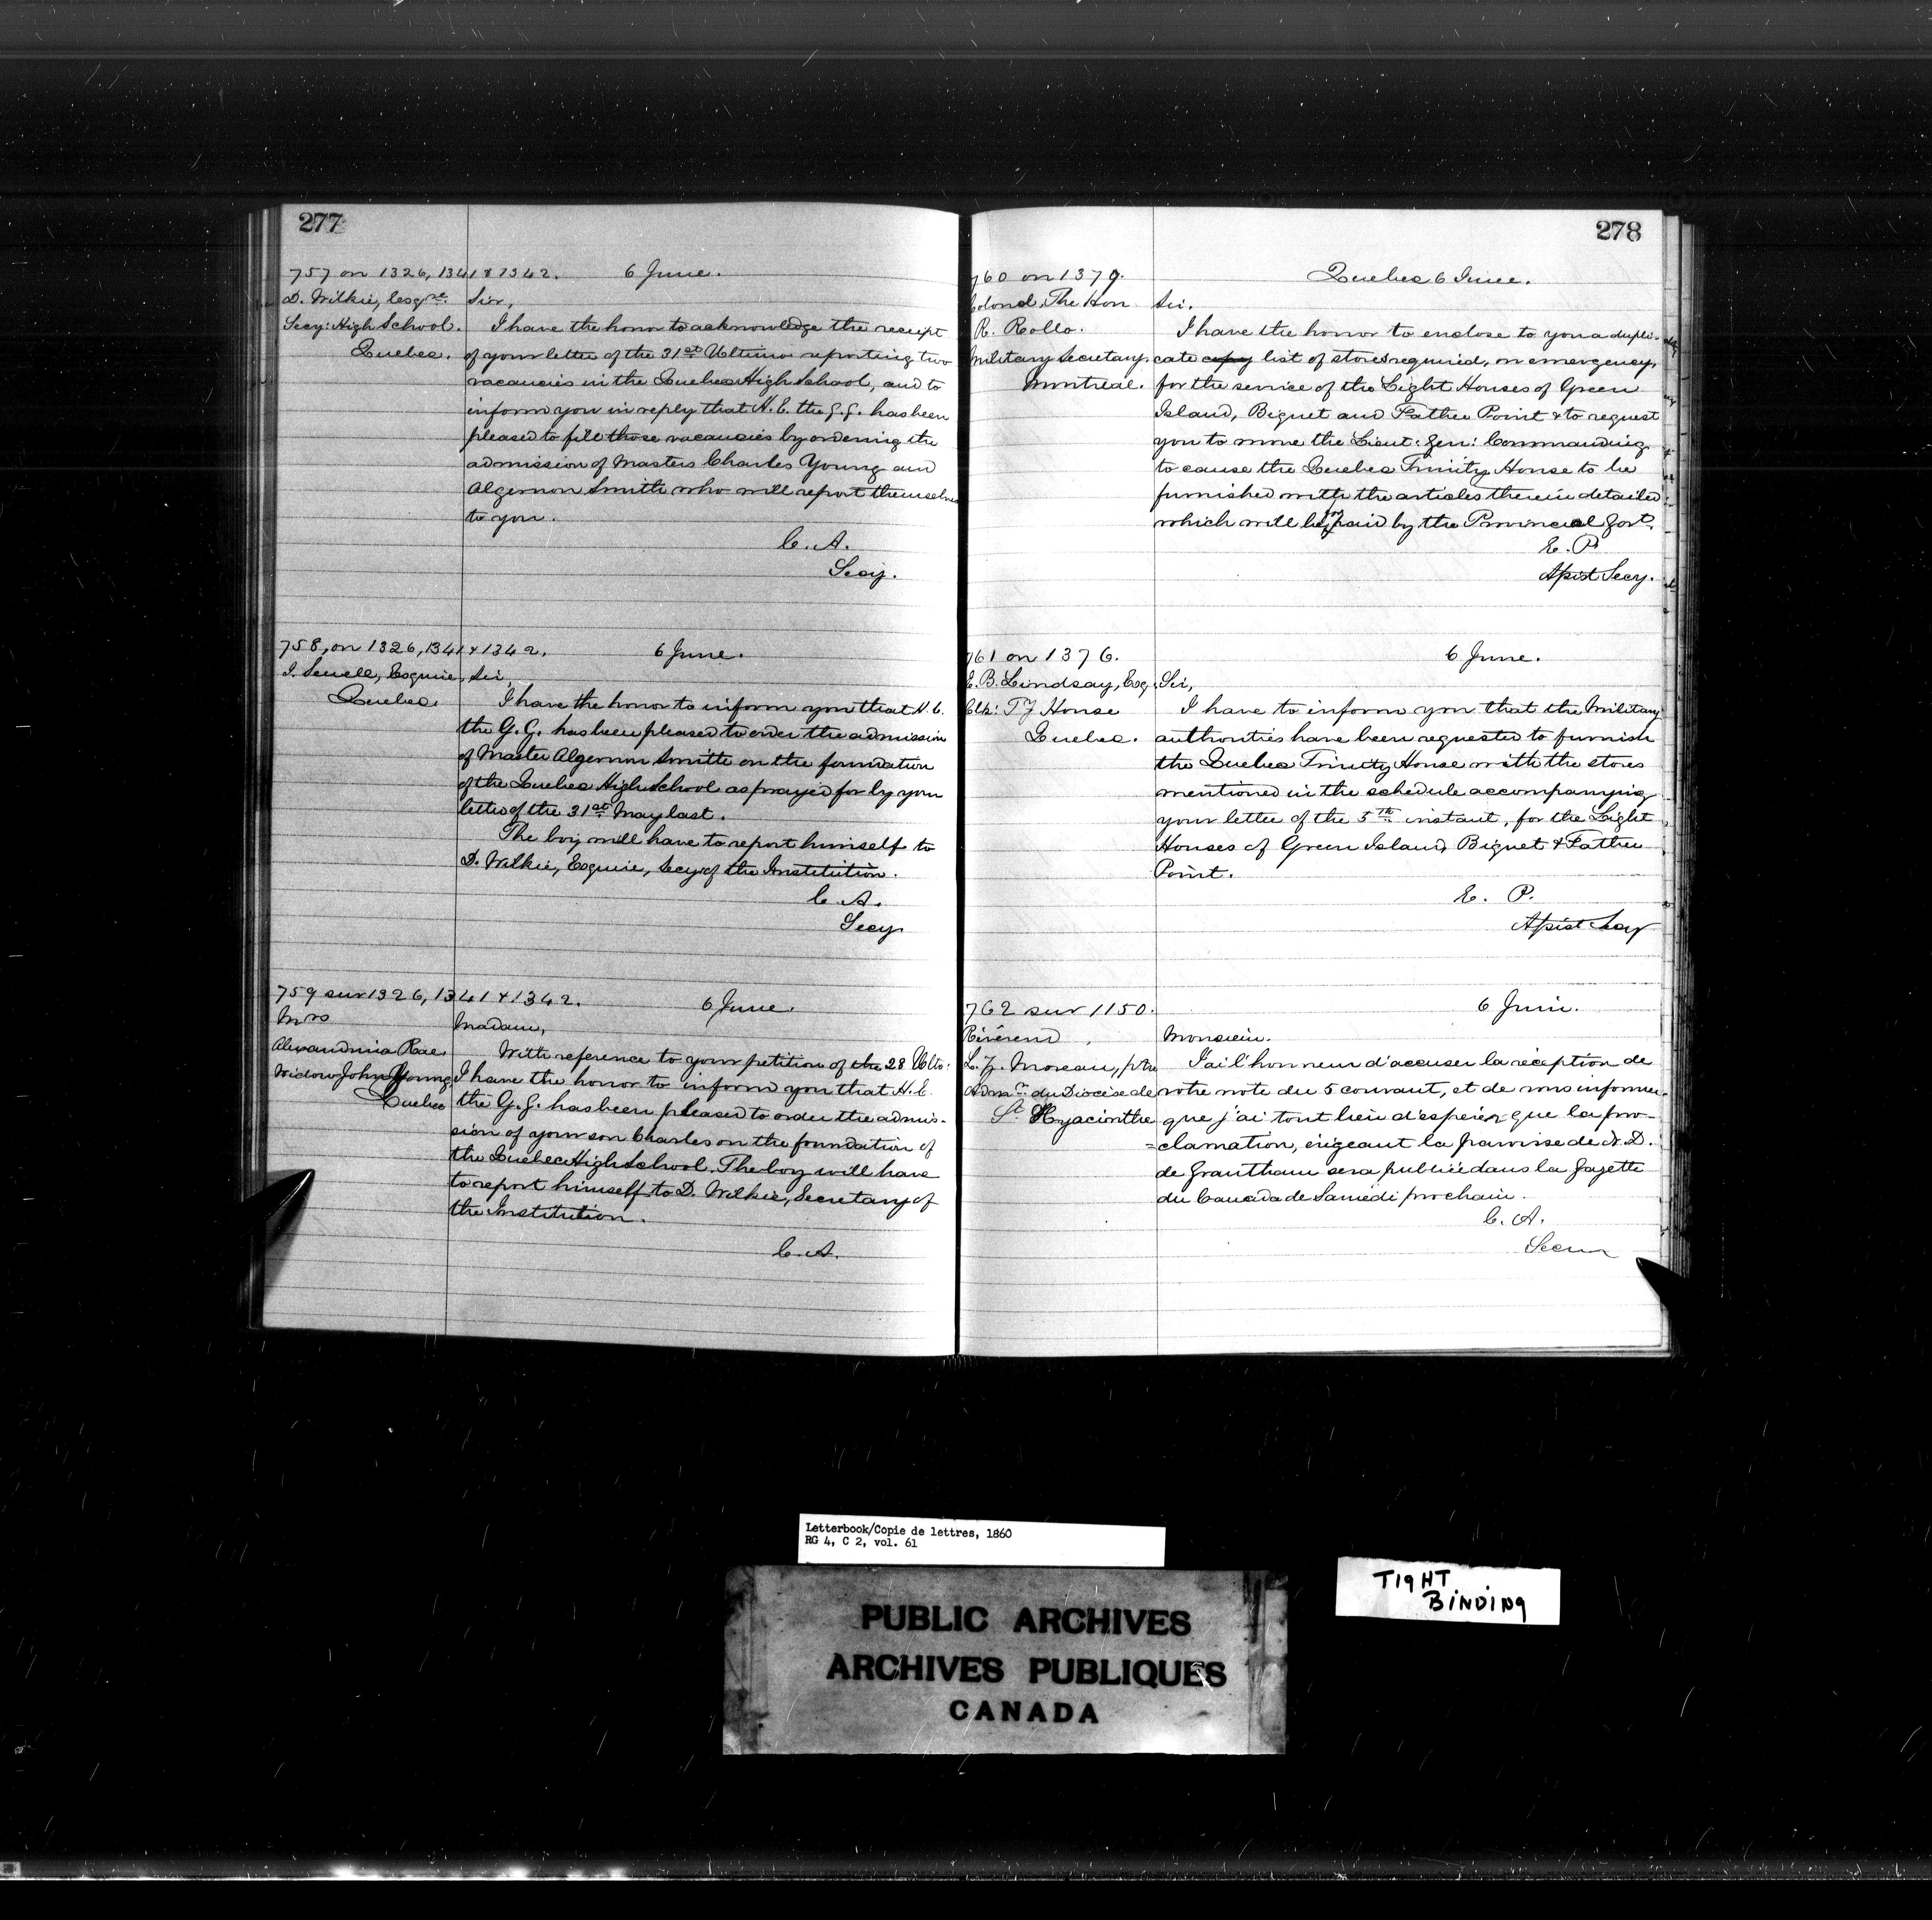 277
757 on 1326, 1341 & 1342. 6 June.
D. Wilkie, Esqre. Sir,
Secy: High School. I have the honor to acknowledge the receipt
Quebec. of your letter of the 31st Ultimo reporting two
vacancies in the Quebec High School, and to
inform you in reply that H. E. the G. G. has been
pleased to fill those vacancies by ordering the
admission of Masters Charles Young and
Algernon Smith who will report themselves
to you.
C. A.
Secy.
758, on 1326, 1341 & 1342. 6 June.
J. Sewell, Esquire, Sir,
Quebec. I have the honor to inform you that H. E.
the G. G. has been pleased to order the admission
of Master Algernon Smith on the foundation
of the Quebec High School as prayed for by your
letter of the 31st May last.
The boy will have to report himself to
D. Wilkie, Esquire, Secy of the Institution.
C. A.
Secy
759 sur 1326, 1341 & 1342. 6 June.
Mrs Madam,
Alexandrina Rae. With reference to your petition of the 28 Ulto.
Widow John Young I have the honor to inform you that H. E.
Quebec the G. G. has been pleased to order the admis-
sion of your son Charles on the foundation of
the Quebec High School. The boy will have
to report himself to D. Wilkie, Secretary of
the Institution.
C. A.
278
760 on 1379. Quebec 6 June.
Colonel The Hon Sir.
R. Rollo. I have the honor to enclose to you a dupli-
Military Secretary cate copy list of stores required, on emergency,
Montreal. for the service of the Light Houses of Green
Island, Biquet and Father Point & to request
you to move the Lieut: Gen: Commanding
to cause the Quebec Trinity House to be
furnished with the articles therein detailed
which will be paid by the Provincial Govt.
E. P.
Assist Secy.
761 on 1376. 6 June.
E. B. Lindsay, Esq. Sir,
Clk: Ty House I have to inform you that the Military
Quebec. authorities have been requested to furnish
the Quebec Trinity House with the stores
mentioned in the schedule accompanying
your letter of the 5th instant, for the Light
Houses of Green Island, Biquet & Father
Point.
E. P.
Assist Secy
762 sur 1150. 6 Juin.
Révérend Monsieur.
L. Z. Moreau, ptre J'ai l'honneur d'accuser la réception de
Admr du Diocèse de votre note du 5 courant, et de vous informer
St Hyacinthe que j'ai tout lieu d'espérer que la pro-
=clamation, érigeant la paroisse de N. D.
de Grantham sera publiée dans la Gazette
du Canada de Samedi prochain.
C. A.
Secr
Letterbook/Copie de lettres, 1860
RG 4, C 2, vol. 61
TIGHT
BINDING
PUBLIC ARCHIVES
ARCHIVES PUBLIQUES
CANADA